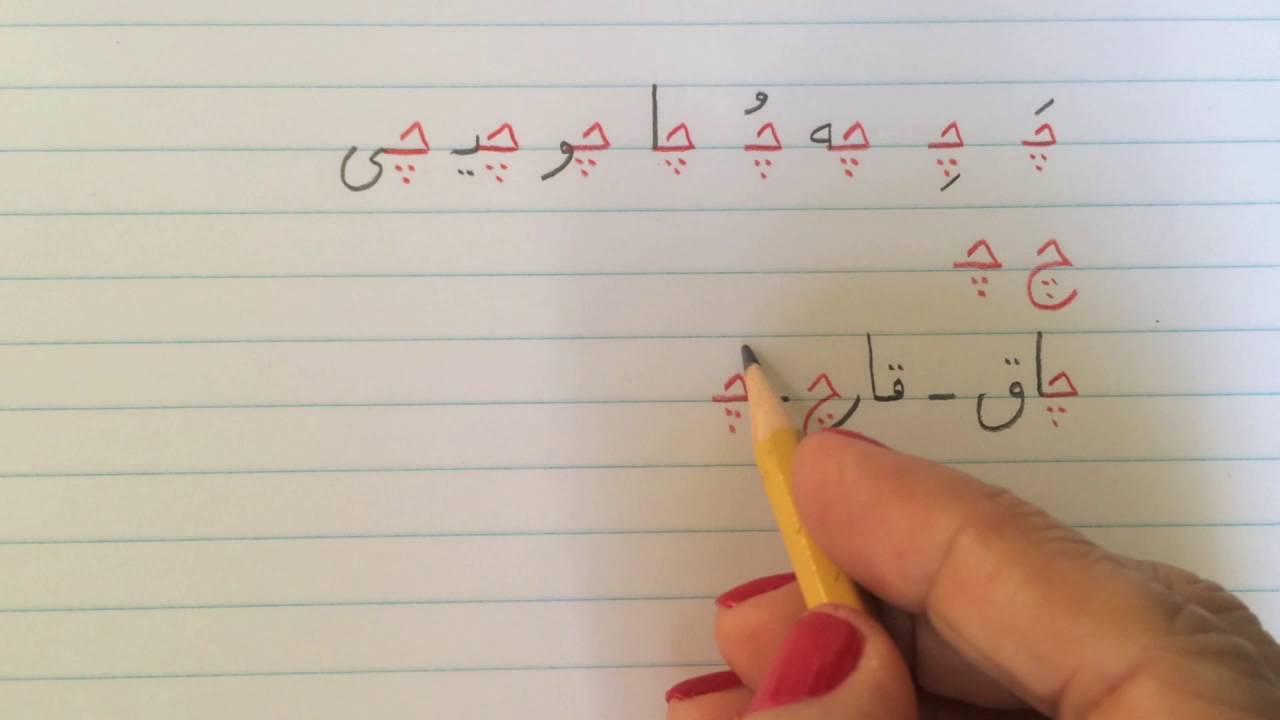 چَ چِ چه چُ چا چو چیـ چی
چ چـ
چاق - قارچ - چـ